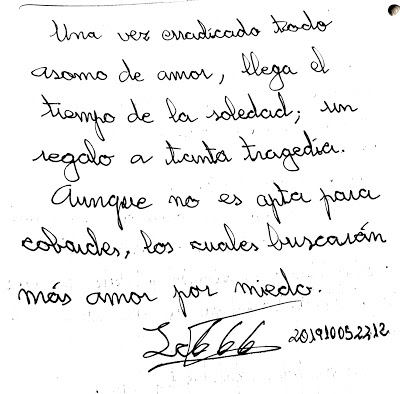 Una vez erradicado todo
asomo de amor, llega el
tiempo de la soledad; un
regalo a tanta tragedia.
Aunque no es apta para
cobardes, los cuales buscarán
más amor por miedo.
201910052212